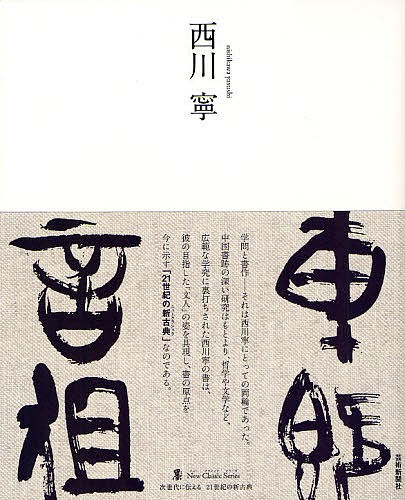 西川 寧
nishikawa yasushi
東
学問と書作――それは西川寧にとっての両輪であった。
中国書跡の深い研究はもとより、哲学や文学など、
広範な学究に裏打ちされた西川寧の書は、
彼の目指した「文人」の姿を具現し、書の原点を
今に示す「21世紀の新古典」なのである。
墨 New Classic Series
次世代に伝える 21世紀の新古典
芸術新聞社